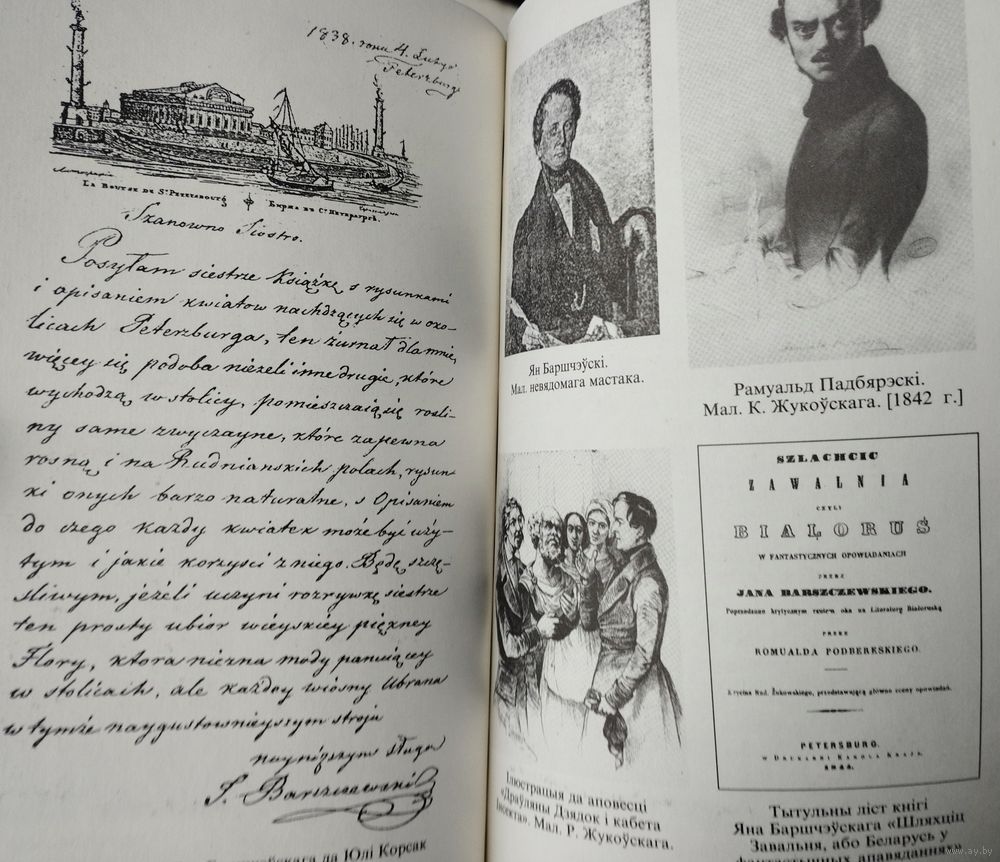 1838. roku 4. Lutego
Peterzburg
La Bourse de St Petersbourg
Биржа въ С. Петербургѣ.
Szanowno Siostro.
Posyłam siestrze Książkę s rysunkami
i opisaniem kwiatow nachdzących się w oko-
licach Peterzburga, ten żurnał dla mnie,
więcey się podoba niżeli inne drugie, które
wychodzą w stolicy, pomieszczają się rosli-
ny same zwyczayne, które zapewna
rosną i na Rudnianskich polach, rysun-
ki onych barzo naturalne, s Opisaniem
do czego każdy kwiatek może być uży-
tym i jakie korzysci z niego. Będę szczę-
śliwym, jeżeli uczyni rozrywkę siestrze
ten prosty ubior wieyskiey piękney
Flory, ktora niezna mody panuiący
w stolicach, ale każdey wiosny Ubrana
w tymże naygustownieyszym stroju
nayniższym sługa
J. Barszczewski
да Юлі Корсак
Ян Баршчэўскі.
Мал. невядомага мастака.
Рамуальд Падбярэскі.
Мал. К. Жукоўскага. [1842 г.]
Ілюстрацыя да аповесці
«Драўляны Дзядок і кабета
Інсекта». Мал. Р. Жукоўскага.
SZLACHCIC
ZAWALNIA
CZYLI
BIAŁORUŚ
W FANTASTYCZNYCH OPOWIADANIACH
PRZEZ
JANA BARSZCZEWSKIEGO.
Poprzedzone krytycznym rzutem oka na Literaturę Białoruską
PRZEZ
ROMUALDA PODBERESKIEGO.
Rycina Rud. Żukowskiego, przedstawiającą główne sceny opowiadań.
PETERSBURG.
W DRUKARNI KAROLA KRAJA.
1844.
Тытульны ліст кнігі
Яна Баршчэўскага «Шляхціц
Завальня, або Беларусь у
фантастычных апавяданнях»
www.ay.by